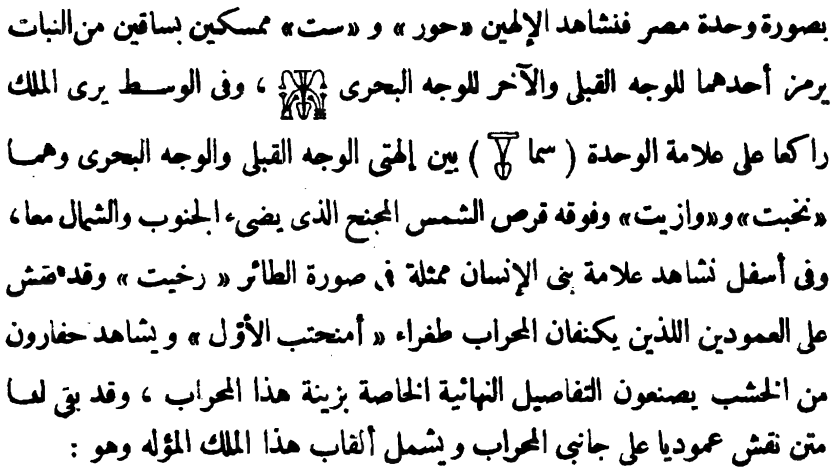 بصورة وحدة مصر فنشاهد الإلهين «حور» و «ست» ممسكين بساقين من النبات
يرمز أحدهما للوجه القبلى والآخر للوجه البحرى ، وفى الوسط يرى الملك
راكعا على علامة الوحدة ( سما ) بين إلهتى الوجه القبلى والوجه البحرى وهما
«نخبت» و«وازيت» وفوقه قرص الشمس المجنح الذى يضىء الجنوب والشمال معا،
وفى أسفل نشاهد علامة بنى الإنسان ممثلة فى صورة الطائر « رخيت » وقد نقش
على العمودين اللذين يكنفان المحراب طغراء « أمنحتب الأوّل » ويشاهد حفارون
من الخشب يصنعون التفاصيل النهائية الخاصة بزينة هذا المحراب ، وقد بقى لنا
متن نقش عموديا على جانبى المحراب ويشمل ألقاب هذا الملك المؤله وهو :